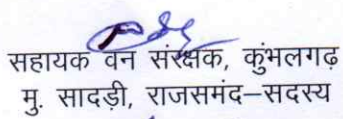 सहायक वन संरक्षक, कुंभलगढ़
मु. सादड़ी, राजसमंद–सदस्य